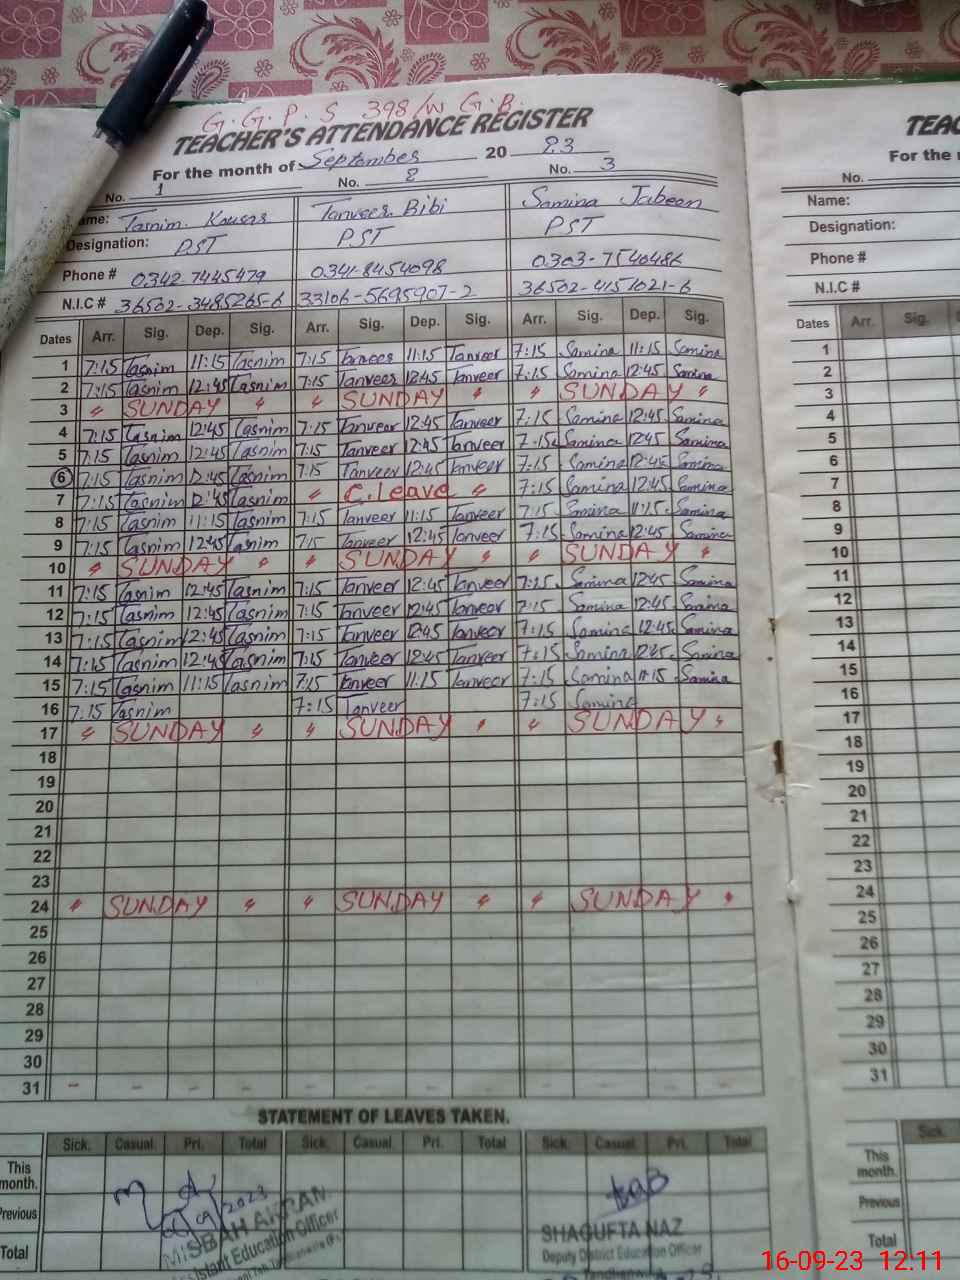 G.G.P.S 398/W G.B.
TEACHER'S ATTENDANCE REGISTER
For the month of September 2023
No. 1 No. 2 No. 3
Name: Tasnim. Kousar Tanveer Bibi Samina Jabeen
Designation: PST PST PST
Phone # 0342-7445479 0341-8454098 0303-7540486
N.I.C # 36502-3485265-6 33106-5695907-2 36502-4157021-6
Dates Arr. Sig. Dep. Sig. Arr. Sig. Dep. Sig. Arr. Sig. Dep. Sig.
1 7:15 Tasnim 11:15 Tasnim 7:15 Tanveer 11:15 Tanveer 7:15 Samina 11:15 Samina
2 7:15 Tasnim 12:45 Tasnim 7:15 Tanveer 12:45 Tanveer 7:15 Samina 12:45 Samina
3 " SUNDAY " " SUNDAY " " SUNDAY "
4 7:15 Tasnim 12:45 Tasnim 7:15 Tanveer 12:45 Tanveer 7:15 Samina 12:45 Samina
5 7:15 Tasnim 12:45 Tasnim 7:15 Tanveer 12:45 Tanveer 7:15 Samina 12:45 Samina
6 7:15 Tasnim 12:45 Tasnim 7:15 Tanveer 12:45 Tanveer 7:15 Samina 12:45 Samina
7 7:15 Tasnim 12:45 Tasnim " C.Leave " 7:15 Samina 12:45 Samina
8 7:15 Tasnim 11:15 Tasnim 7:15 Tanveer 11:15 Tanveer 7:15 Samina 11:15 Samina
9 7:15 Tasnim 12:45 Tasnim 7:15 Tanveer 12:45 Tanveer 7:15 Samina 12:45 Samina
10 " SUNDAY " " SUNDAY " " SUNDAY "
11 7:15 Tasnim 12:45 Tasnim 7:15 Tanveer 12:45 Tanveer 7:15 Samina 12:45 Samina
12 7:15 Tasnim 12:45 Tasnim 7:15 Tanveer 12:45 Tanveer 7:15 Samina 12:45 Samina
13 7:15 Tasnim 12:45 Tasnim 7:15 Tanveer 12:45 Tanveer 7:15 Samina 12:45 Samina
14 7:15 Tasnim 12:45 Tasnim 7:15 Tanveer 12:45 Tanveer 7:15 Samina 12:45 Samina
15 7:15 Tasnim 11:15 Tasnim 7:15 Tanveer 11:15 Tanveer 7:15 Samina 11:15 Samina
16 7:15 Tasnim 7:15 Tanveer 7:15 Samina
17 " SUNDAY " " SUNDAY " " SUNDAY "
18
19
20
21
22
23
24 " SUNDAY " " SUNDAY " " SUNDAY "
25
26
27
28
29
30
31 - - - - - - - - - - - -
STATEMENT OF LEAVES TAKEN.
Sick. Casual. Pri. Total Sick. Casual. Pri. Total Sick. Casual. Pri. Total
This month.
Previous
Total
MISBAH AKRAN
Assistant Education Officer
SHAGUFTA NAZ
Deputy District Education Officer
TEAC
For the
No.
Name:
Designation:
Phone #
N.I.C #
Dates Arr. Sig.
1
2
3
4
5
6
7
8
9
10
11
12
13
14
15
16
17
18
19
20
21
22
23
24
25
26
27
28
29
30
31
Sick.
This month.
Previous
Total
16-09-23 12:11